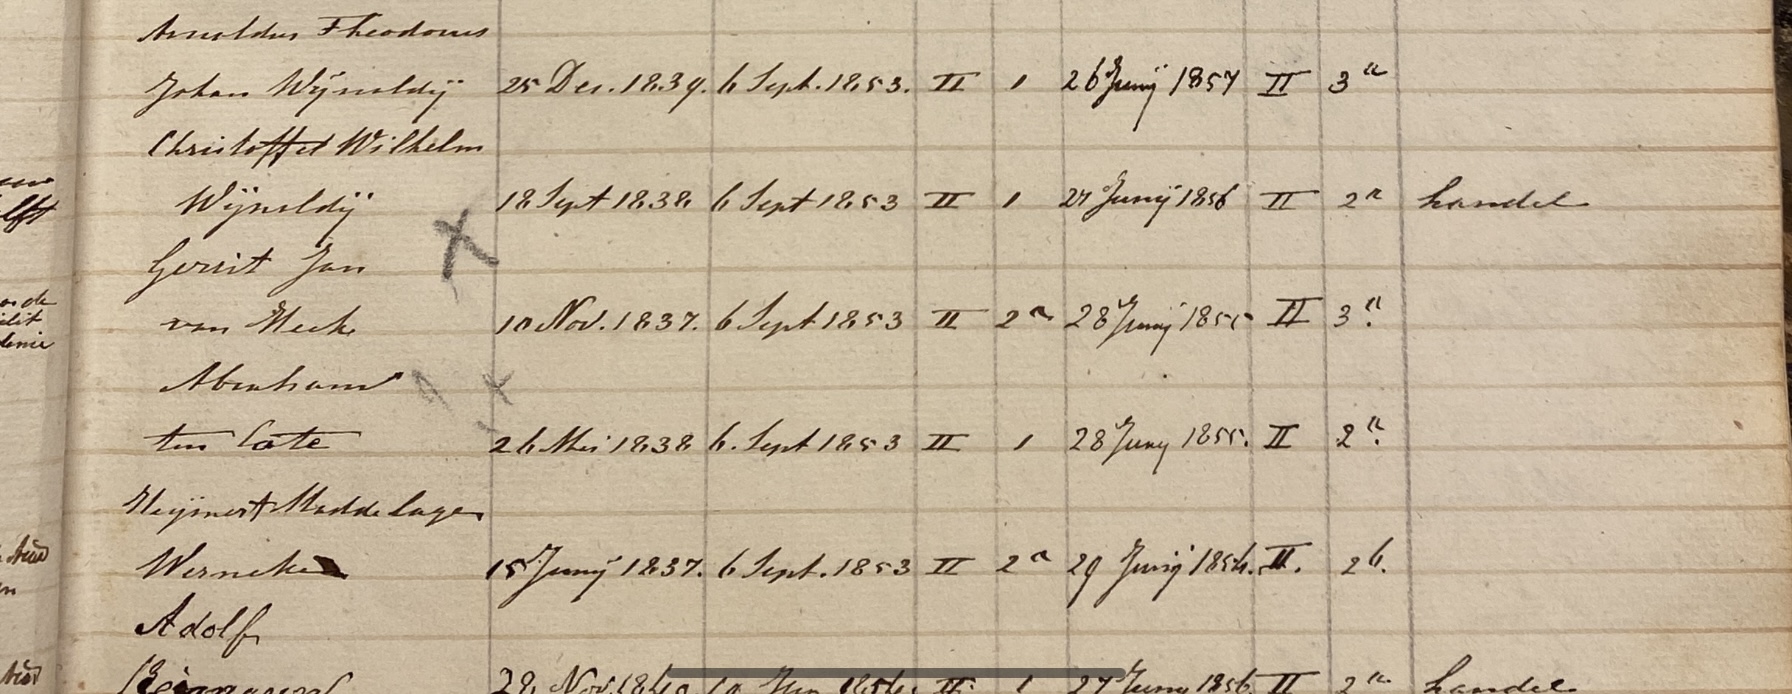 Arnoldus Theodorus
Johan Wÿnoldÿ 25 Dec. 1839. 6 Sept. 1853. II 1 26 Junÿ 1857 II 3 a
Christoffel Wilhelm
Wÿnoldÿ 18 Sept 1838 6 Sept 1853 II 1 27 Junÿ 1856 II 2 a handel
Gerrit Jan
van 10 Nov. 1837. 6 Sept 1853 II 2 a 28 Junÿ 1855 II 3 a.
Abraham
ten Cate 26 Mei 1838 6. Sept 1853 II 1 28 Juny 1855. II 2 a.
Werneke 15 Junÿ 1837. 6 Sept. 1853 II 2 a 29 Junÿ 1854. II. 2 b.
Adolf
28 Nov. II 1 27 Juny 1856. II 2 a handel